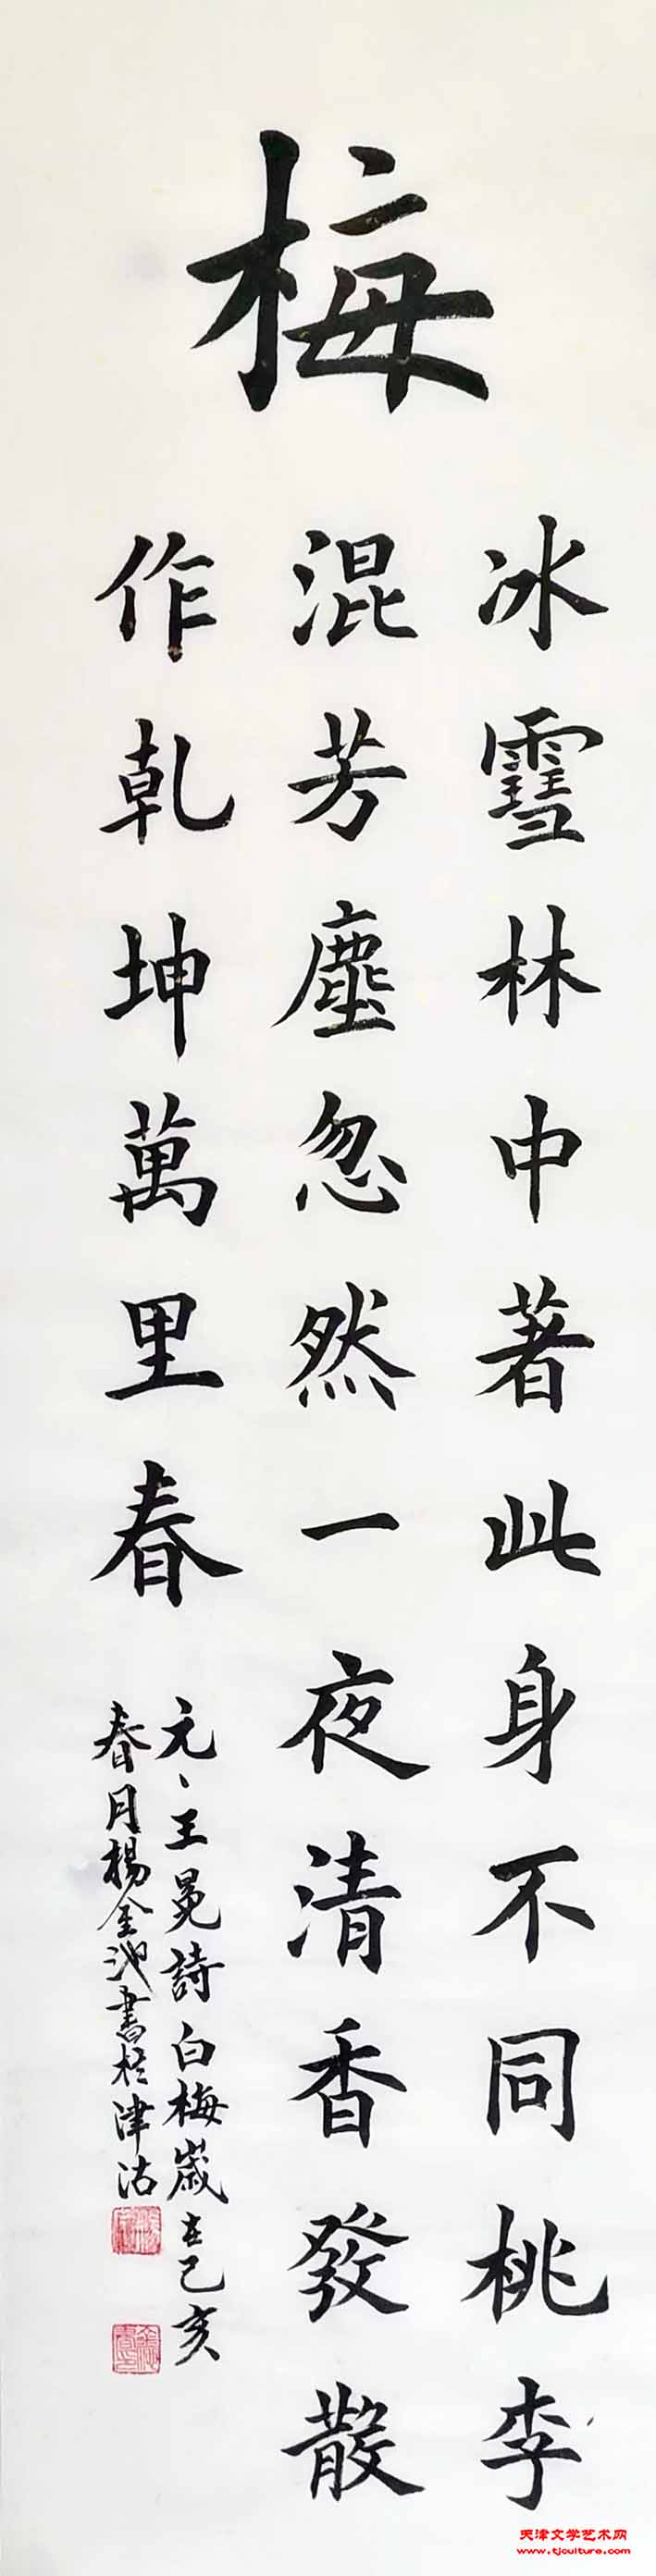 梅
冰雪林中著此身不同桃李
混芳塵忽然一夜清香發散
作乾坤萬里春
元、王冕詩白梅歲在己亥
春月楊金池書於津沽
天津文学艺术网
www.tjculture.com